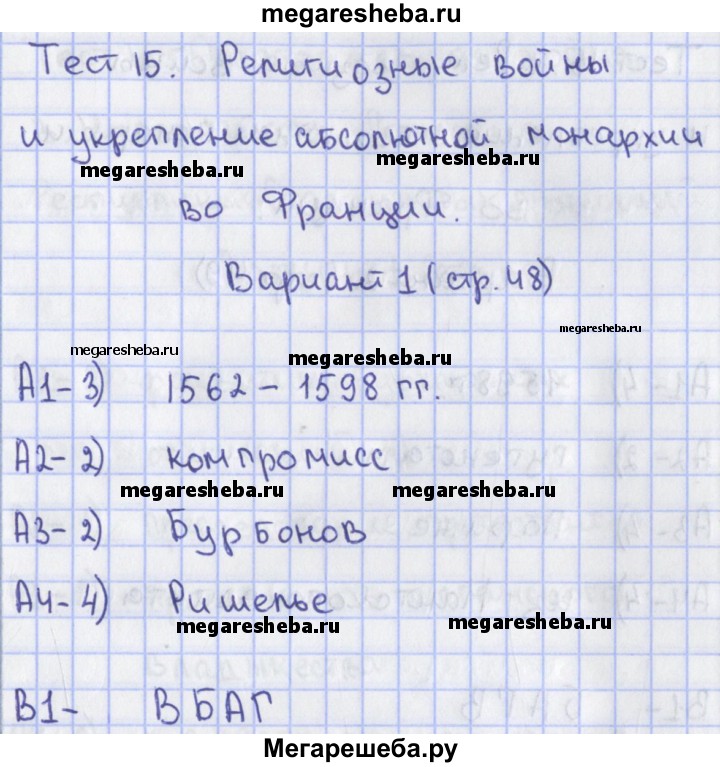 megaresheba.ru
Тест 15. Религиозные войны
и укрепление абсолютной монархии
megaresheba.ru
megaresheba.ru
во Франции.
Вариант 1 (стр. 48)
megaresheba.ru
megaresheba.ru
megaresheba.ru
А1- 3) 1562 - 1598 гг.
А2- 2) компромисс
megaresheba.ru
megaresheba.ru
А3- 2) Бурбонов
А4- 4) Ришелье
megaresheba.ru
megaresheba.ru
В1- ВБАГ
Мегарешеба.ру